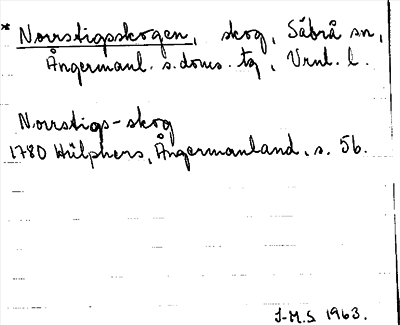 * Norrstigsskogen, skog, Säbrå sn,
Ångermanl. s. doms. tg, Vrnl. l.
Norrstigs-skog
1780 Hülphers, Ångermanland, s. 56.
J-M.S. 1963.